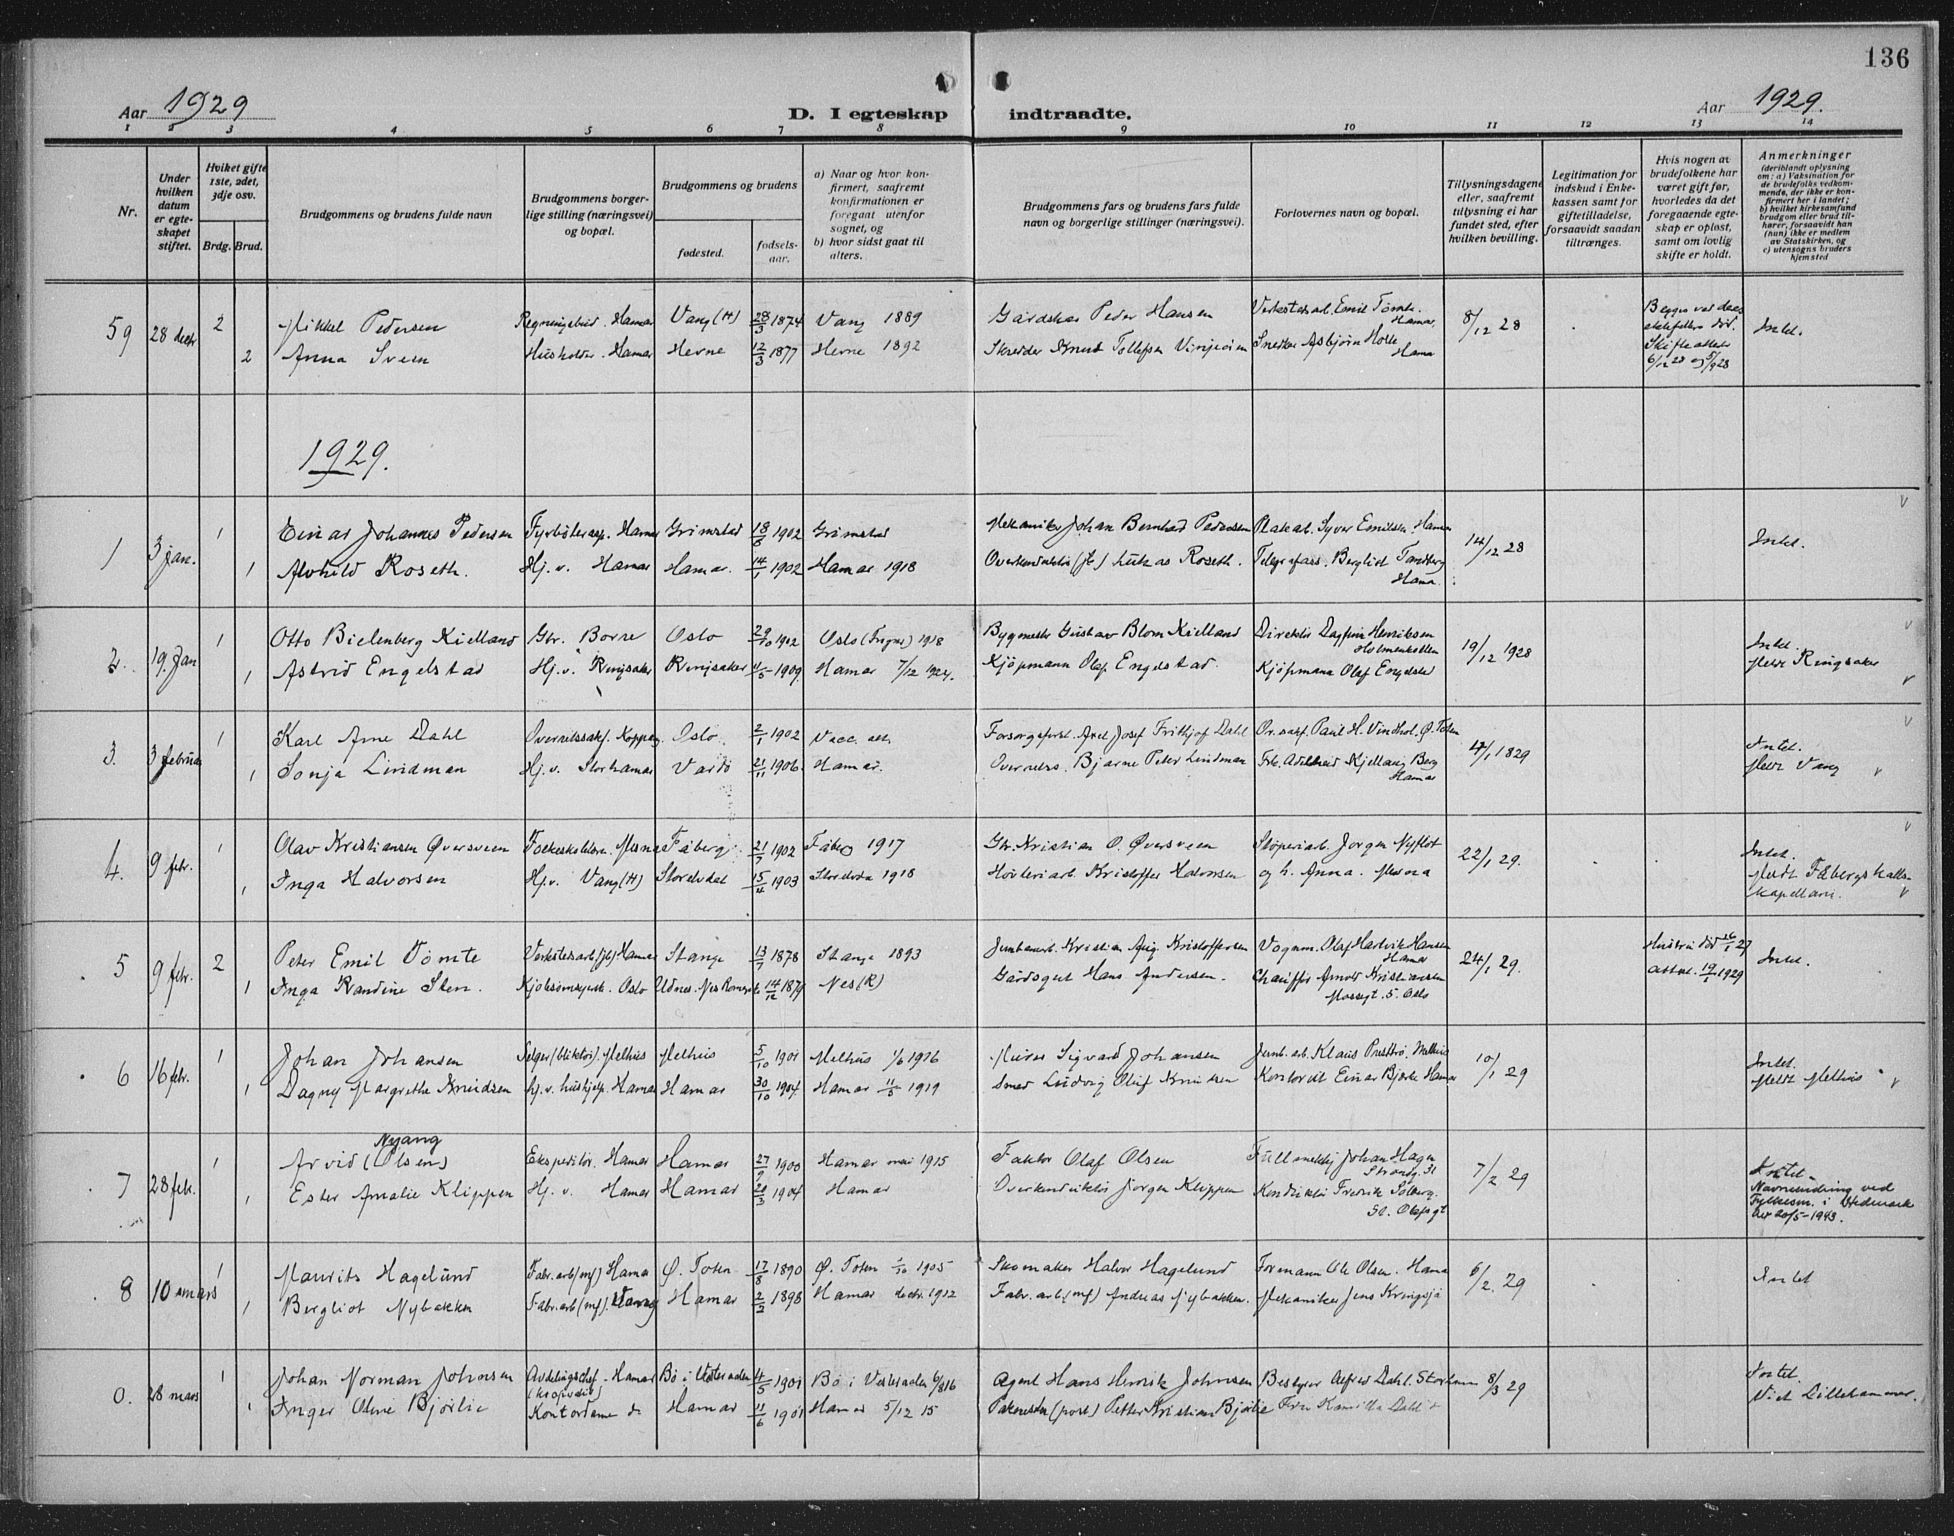 136
Aar 1929 D. I egteskap indtraadte. Aar 1929.
1 2 3 4 5 6 7 8 9 10 11 12 13 14
Nr.
Under hvilken datum er egteskapet stiftet.
Hviket gifte 1ste, 2det, 3dje osv.
Brdg. Brud.
Brudgommens og brudens fulde navn
Brudgommens borgerlige stilling (næringsvei) og bopæl.
Brudgommens og brudens
fødested. fødselsaar.
a) Naar og hvor konfirmert, saafremt konfirmationen er foregaat utenfor sognet, og
b) hvor sidst gaat til alters.
Brudgommens fars og brudens fars fulde navn og borgerlige stillinger (næringsvei).
Forlovernes navn og bopæl.
Tillysningsdagene eller, saafremt tillysning ei har fundet sted, efter hvilken bevilling.
Legitimation for indskud i Enkekassen samt for giftetilladelse, forsaavidt saadan tiltrænges.
Hvis nogen av brudefolkene har været gift før, hvorledes da det foregaaende egteskap er opløst, samt om lovlig skifte er holdt.
Anmerkninger
(deriblandt oplysning om: a) Vaksination for de brudefolks vedkommende, der ikke er konfirmert her i landet;
b) hvilket kirkesamfund brudgom eller brud tilhører, forsaavidt han (hun) ikke er medlem av Statskirken, og
c) utensogns bruders hjemsted
59 28 decbr 2 Mikkel Pedersen Regningsbud. Hamar Vang (H) 28/3 1874 Vang 1889 Gårdsbr Peder Hansen Verkstedsarb. Emil Tømte. Hamar, 8/12 28 Intet.
2 Anna Sveen Husholder. Hamar Hevne 12/3 1877 Hevne 1892 Skredder Knud Tollefsen Snedker Asbjørn Holte Hamar
6/12 28 og 5/9 28
1929.
1 3 jan. 1 Einar Johannes Pedersen Hamar Grimstad 18/8 1902 Grimstad Mekaniker Johan Bernhad Pedersen Syver Emilsen Hamar 14/12 28 Intet.
1 Alvhild Roseth. Hj. v. Hamar Hamar. 14/1 1902 Hamar 1918 Lukas Roseth. Bergliot Tandberg Hamar.
2. 19. jan 1 Otto Bielenberg Kielland Gbr. Borre Oslo 29/10 1902 Oslo (Frogner) 1918 Bygmester Gustav Blom Kielland Direktør Dagfinn Henriksen Holmenkollen 19/12 1928 Intet.
1 Astrid Engelstad Hj. v. Ringsaker Ringsaker 11/5 1909 Hamar 7/12 1924. Kjøpmann Olaf Engelstad. Kjøpmann Olaf Engelstad Meldt Ringsaker
3. 3 februar 1 Karl Arne Dahl Oslo. 2/1 1902 Vacc. att. Axel Josef Frithjof Dahl Or. sakf. Paul H. Vindhol. Ø. Toten Intet.
1 Sonja Lindman Hj. v. Storhamar Vardø 21/11 1906. Hamar. Bjarne Peter Lindman Frk. Adelheid Kjelland Berg Hamar Meldt Vang
4. 9 febr. 1 Olav Kristiansen Øversveen Mesna Fåberg 21/7 1902 Fåberg 1917 Gbr. Kristian O. Øversveen Støperiarb. Jørgen Nyfløt 22/1 29. Intet.
1 Inga Halvorsen Hj. v. Vang (H) Storelvdal 15/4 1903 Storelvda 1918 Høvleriarb Kristoffer Halvorsen og h. Anna. Mesna Meldt Fåbergs kallskapellani.
5 9 febr. 2 Peter Emil Tømte Verkstedsarb (jb) Hamar Stange 13/7 1878 Stange 1893 Jernbanearb. Kristian Aug. Kristoffersen Vognm. Olaf Hartvik Hansen Hamar 24/1 29. Intet.
1 Inga Randine Sten. Oslo Udnes. Nes Romerike 14/12 1879 Nes (R) Gårdsgut Hans Andersen. Chauffør Arnold Kristiansen Mossegt. 5. Oslo attest. 19/1 1929
6 16 febr. 1 Johan Johansen Melhus Melhus 5/10 1901 Melhus 1/6 1916 Murer Sigvard Johansen Jernb. arb. Klaus Melhus 10/1 29 Intet.
1 Dagny Margrethe Knudsen Hj. v. hushjelp. Hamar Hamar 30/10 1904. Hamar 11/5 1919 Smed Ludvig Oluf Knudsen Kontorist Einar Bjerke Hamar Meldt Melhus
7 28 febr. 1 Arvid (Olsen) Nyang Ekspeditør. Hamar Hamar 27/9 1900 Hamar mai 1915 Faktor Olaf Olsen Fullmektig Johan Hagen Strandg. 31 7/2 29 Intet.
1 Ester Amalie Klippen Hj. v. Hamar Hamar 20/3 1904 Hamar Overkonduktør Jørgen Klippen Konduktør Fredrik Solberg. St. Olafsgt Navneendring ved Fylkesm. i Hedemark
20/5-1943.
8 10 mars 1 Maurits Hagelund Fabr. arb (mf) Hamar Ø. Toten 17/8 1890 Ø. Toten 1905 Skomaker Halvor Hagelund Formann Ole Olsen. Hamar 6/2. 29 Intet
1 Bergliot Nybakken Fabr. arb (mf). Vang Hamar 2/2 1898 Hamar decbr. 1912 Fabr. arb (mf) Andreas Nybakken. Mekaniker Jens Kringsjå
0. 28 mars 1 Johan Norman Johnsen Avdelingschef. Hamar Bø i Vesteraalen 4/5 1901 Bø i Vesteraalen 6/8 16 Agent Hans Henrik Johnsen Bestyrer Alfred Dahl. Storhamar 8/3 29 Intet.
1 Inger Olene Bjørlie Kontordame do Hamar 11/6 1901 Hamar 5/12 15 (post) Petter Kristian Bjørlie Fru Kamilla Dahl Viet Lillehammer.